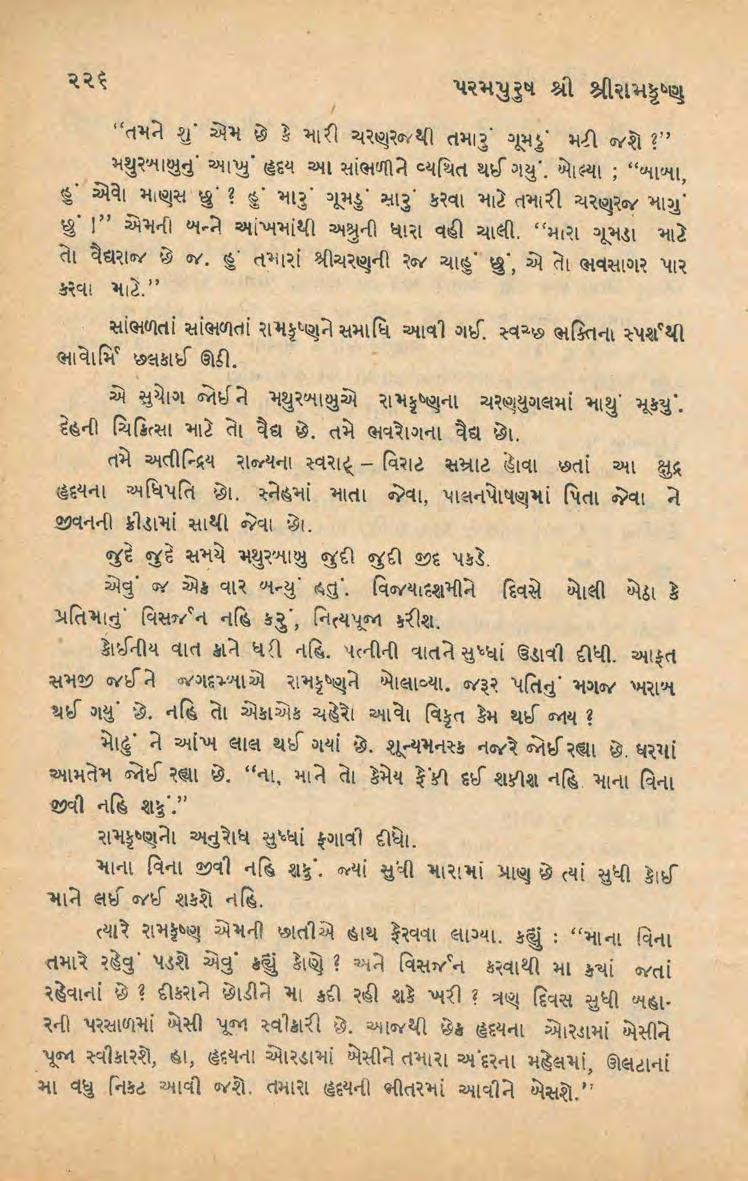 ૨૨૬
પરમપુરુષ શ્રી શ્રીરામકૃષ્ણ
“તમને શું એમ છે કે મારી ચરણરજથી તમારું ગૂમડું મટી જશે ?”
મથુરબાબુનું આખું હૃદય આ સાંભળીને વ્યથિત થઈ ગયું. બોલ્યા ; “બાબા,
હું એવો માણસ છું ? હું મારું ગૂમડું સારું કરવા માટે તમારી ચરણરજ માગું
છું !” એમની બન્ને આંખમાંથી અશ્રુની ધારા વહી ચાલી. “મારા ગૂમડા માટે
તો વૈદ્યરાજ છે જ. હું તમારાં શ્રીચરણની રજ ચાહું છું, એ તો ભવસાગર પાર
કરવા માટે.”
સાંભળતાં સાંભળતાં રામકૃષ્ણને સમાધિ આવી ગઈ. સ્વચ્છ ભક્તિના સ્પર્શથી
ભાવોર્મિ છલકાઈ ઊઠી.
એ સુયોગ જોઈને મથુરબાબુએ રામકૃષ્ણના ચરણયુગલમાં માથું મૂક્યું.
દેહની ચિકિત્સા માટે તો વૈદ્ય છે. તમે ભવરોગના વૈદ્ય છો.
તમે અતીન્દ્રિય રાજ્યના સ્વરાટ્ – વિરાટ સમ્રાટ હોવા છતાં આ ક્ષુદ્ર
હૃદયના અધિપતિ છો. સ્નેહમાં માતા જેવા, પાલનપોષણમાં પિતા જેવા ને
જીવનની ક્રીડામાં સાથી જેવા છો.
જુદે જુદે સમયે મથુરબાબુ જુદી જુદી જીદ પકડે.
એવું જ એક વાર બન્યું હતું. વિજયાદશમીને દિવસે બોલી બેઠા કે
પ્રતિમાનું વિસર્જન નહિ કરું, નિત્યપૂજા કરીશ.
કોઈનીય વાત કાને ધરી નહિ. પત્નીની વાતને સુધ્ધાં ઉડાવી દીધી. આફત
સમજી જઈને જગદમ્બાએ રામકૃષ્ણને બોલાવ્યા. જરૂર પતિનું મગજ ખરાબ
થઈ ગયું છે. નહિ તો એકાએક ચહેરો આવો વિકૃત કેમ થઈ જાય ?
મોઢું ને આંખ લાલ થઈ ગયાં છે. શૂન્યમનસ્ક નજરે જોઈ રહ્યા છે. ઘરમાં
આમતેમ જોઈ રહ્યા છે. “ના, માને તો કેમેય ફેંકી દઈ શકીશ નહિ માના વિના
જીવી નહિ શકું.”
રામકૃષ્ણનો અનુરોધ સુધ્ધાં ફગાવી દીધો.
માના વિના જીવી નહિ શકું. જ્યાં સુધી મારામાં પ્રાણ છે ત્યાં સુધી કોઈ
માને લઈ જઈ શકશે નહિ.
ત્યારે રામકૃષ્ણ એમની છાતીએ હાથ ફેરવવા લાગ્યા. કહ્યું : “માના વિના
તમારે રહેવું પડશે એવું કહ્યું કોણે ? અને વિસર્જન કરવાથી મા કયાં જતાં
રહેવાનાં છે ? દીકરાને છોડીને મા કદી રહી શકે ખરી ? ત્રણ દિવસ સુધી બહા-
રની પરસાળમાં બેસી પૂજા સ્વીકારી છે. આજથી છેક હૃદયના ઓરડામાં બેસીને
પૂજા સ્વીકારશે, હા, હૃદયના ઓરડામાં બેસીને તમારા અંદરના મહેલમાં, ઊલટાનાં
મા વધુ નિકટ આવી જશે. તમારા હૃદયની ભીતરમાં આવીને બેસશે.”